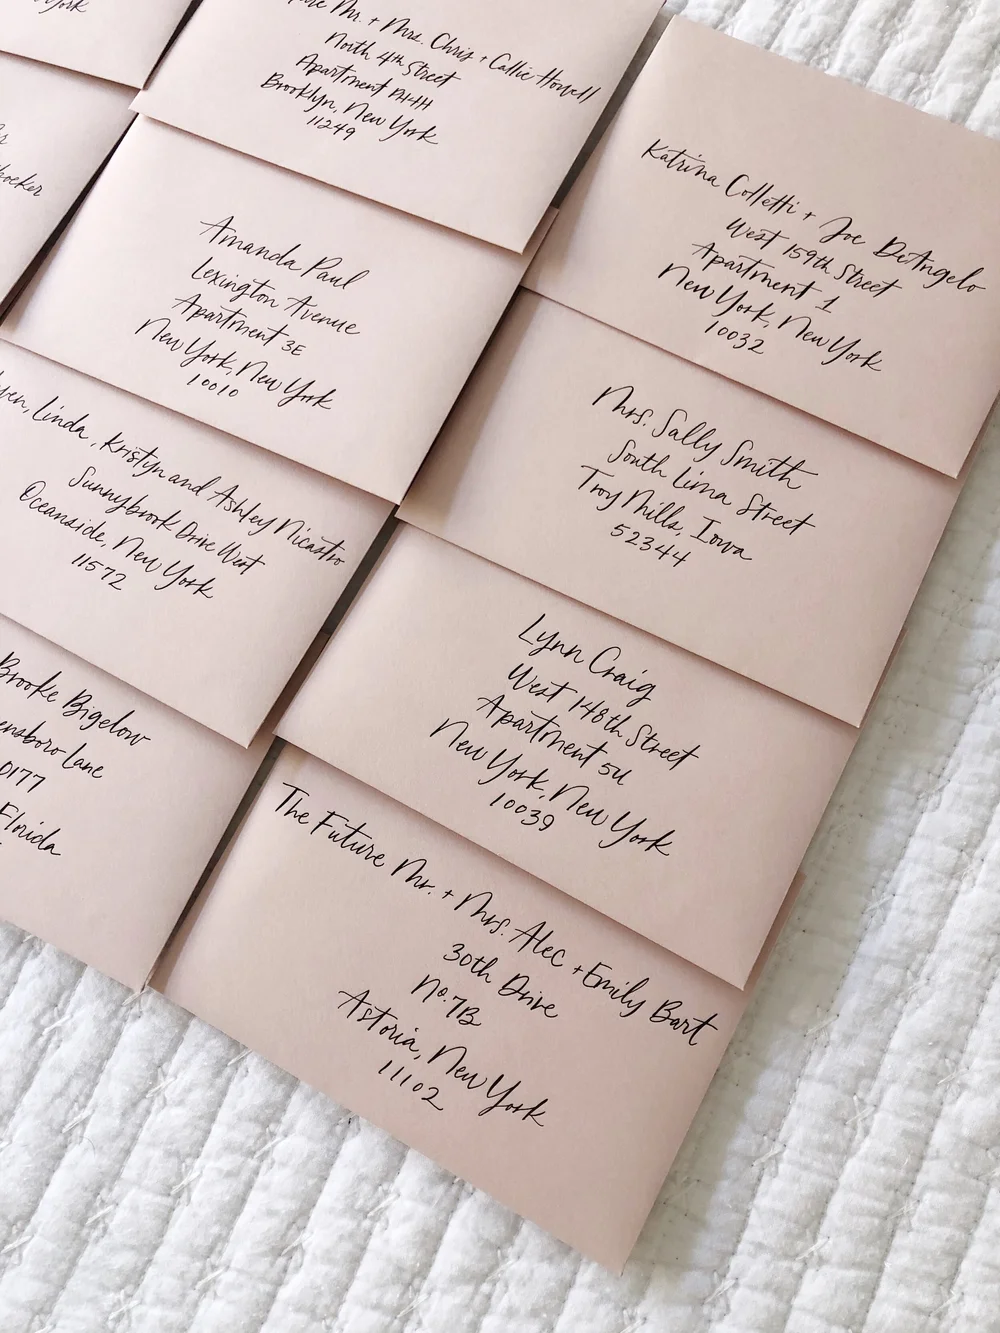 York
Mr. + Mrs. Chris + Callie Howell
North 4th Street
Apartment PH4H
Brooklyn, New York
11249
Amanda Paul
Lexington Avenue
Apartment 3E
New York, New York
10010
Linda, Kristyn and Ashley Nicastro
Sunnybrook Drive West
Oceanside, New York
11572
Brooke Bigelow
Lane
0177
Florida
Katrina Colletti + Joe DeAngelo
West 159th Street
Apartment 1
New York, New York
10032
Mrs. Sally Smith
South Lima Street
Troy Mills, Iowa
52344
Lynn Craig
West 148th Street
Apartment 5U
New York, New York
10039
The Future Mr. + Mrs. Alec + Emily Bart
30th Drive
No. 7B
Astoria, New York
11102